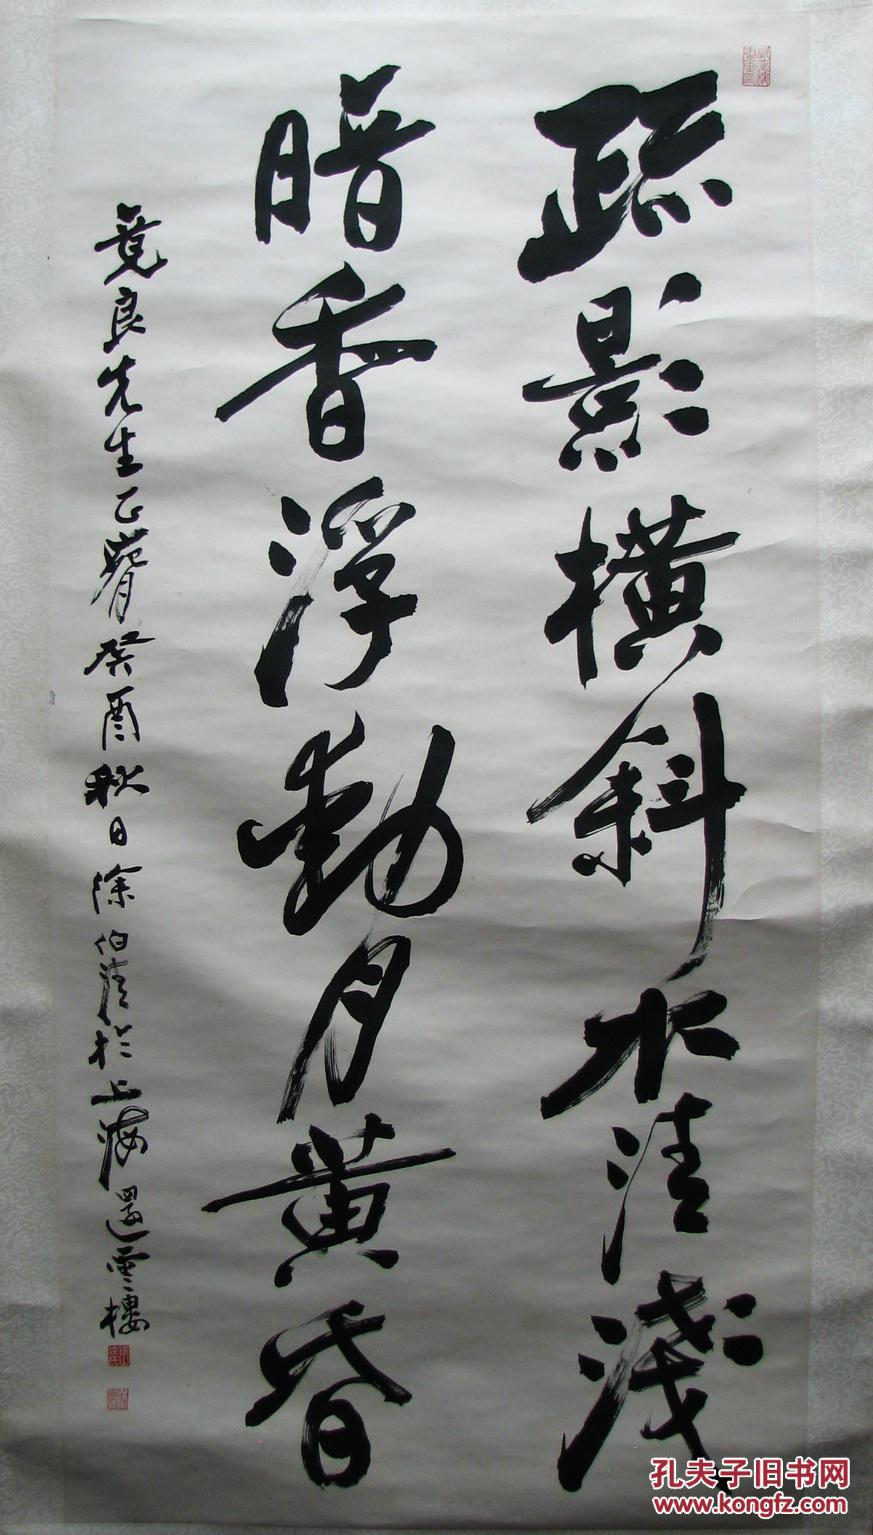 疏影橫斜水清淺
暗香浮動月黃昏
竟良先生正臂癸酉秋日徐伯清於上海還雲樓
孔夫子旧书网
www.kongfz.com